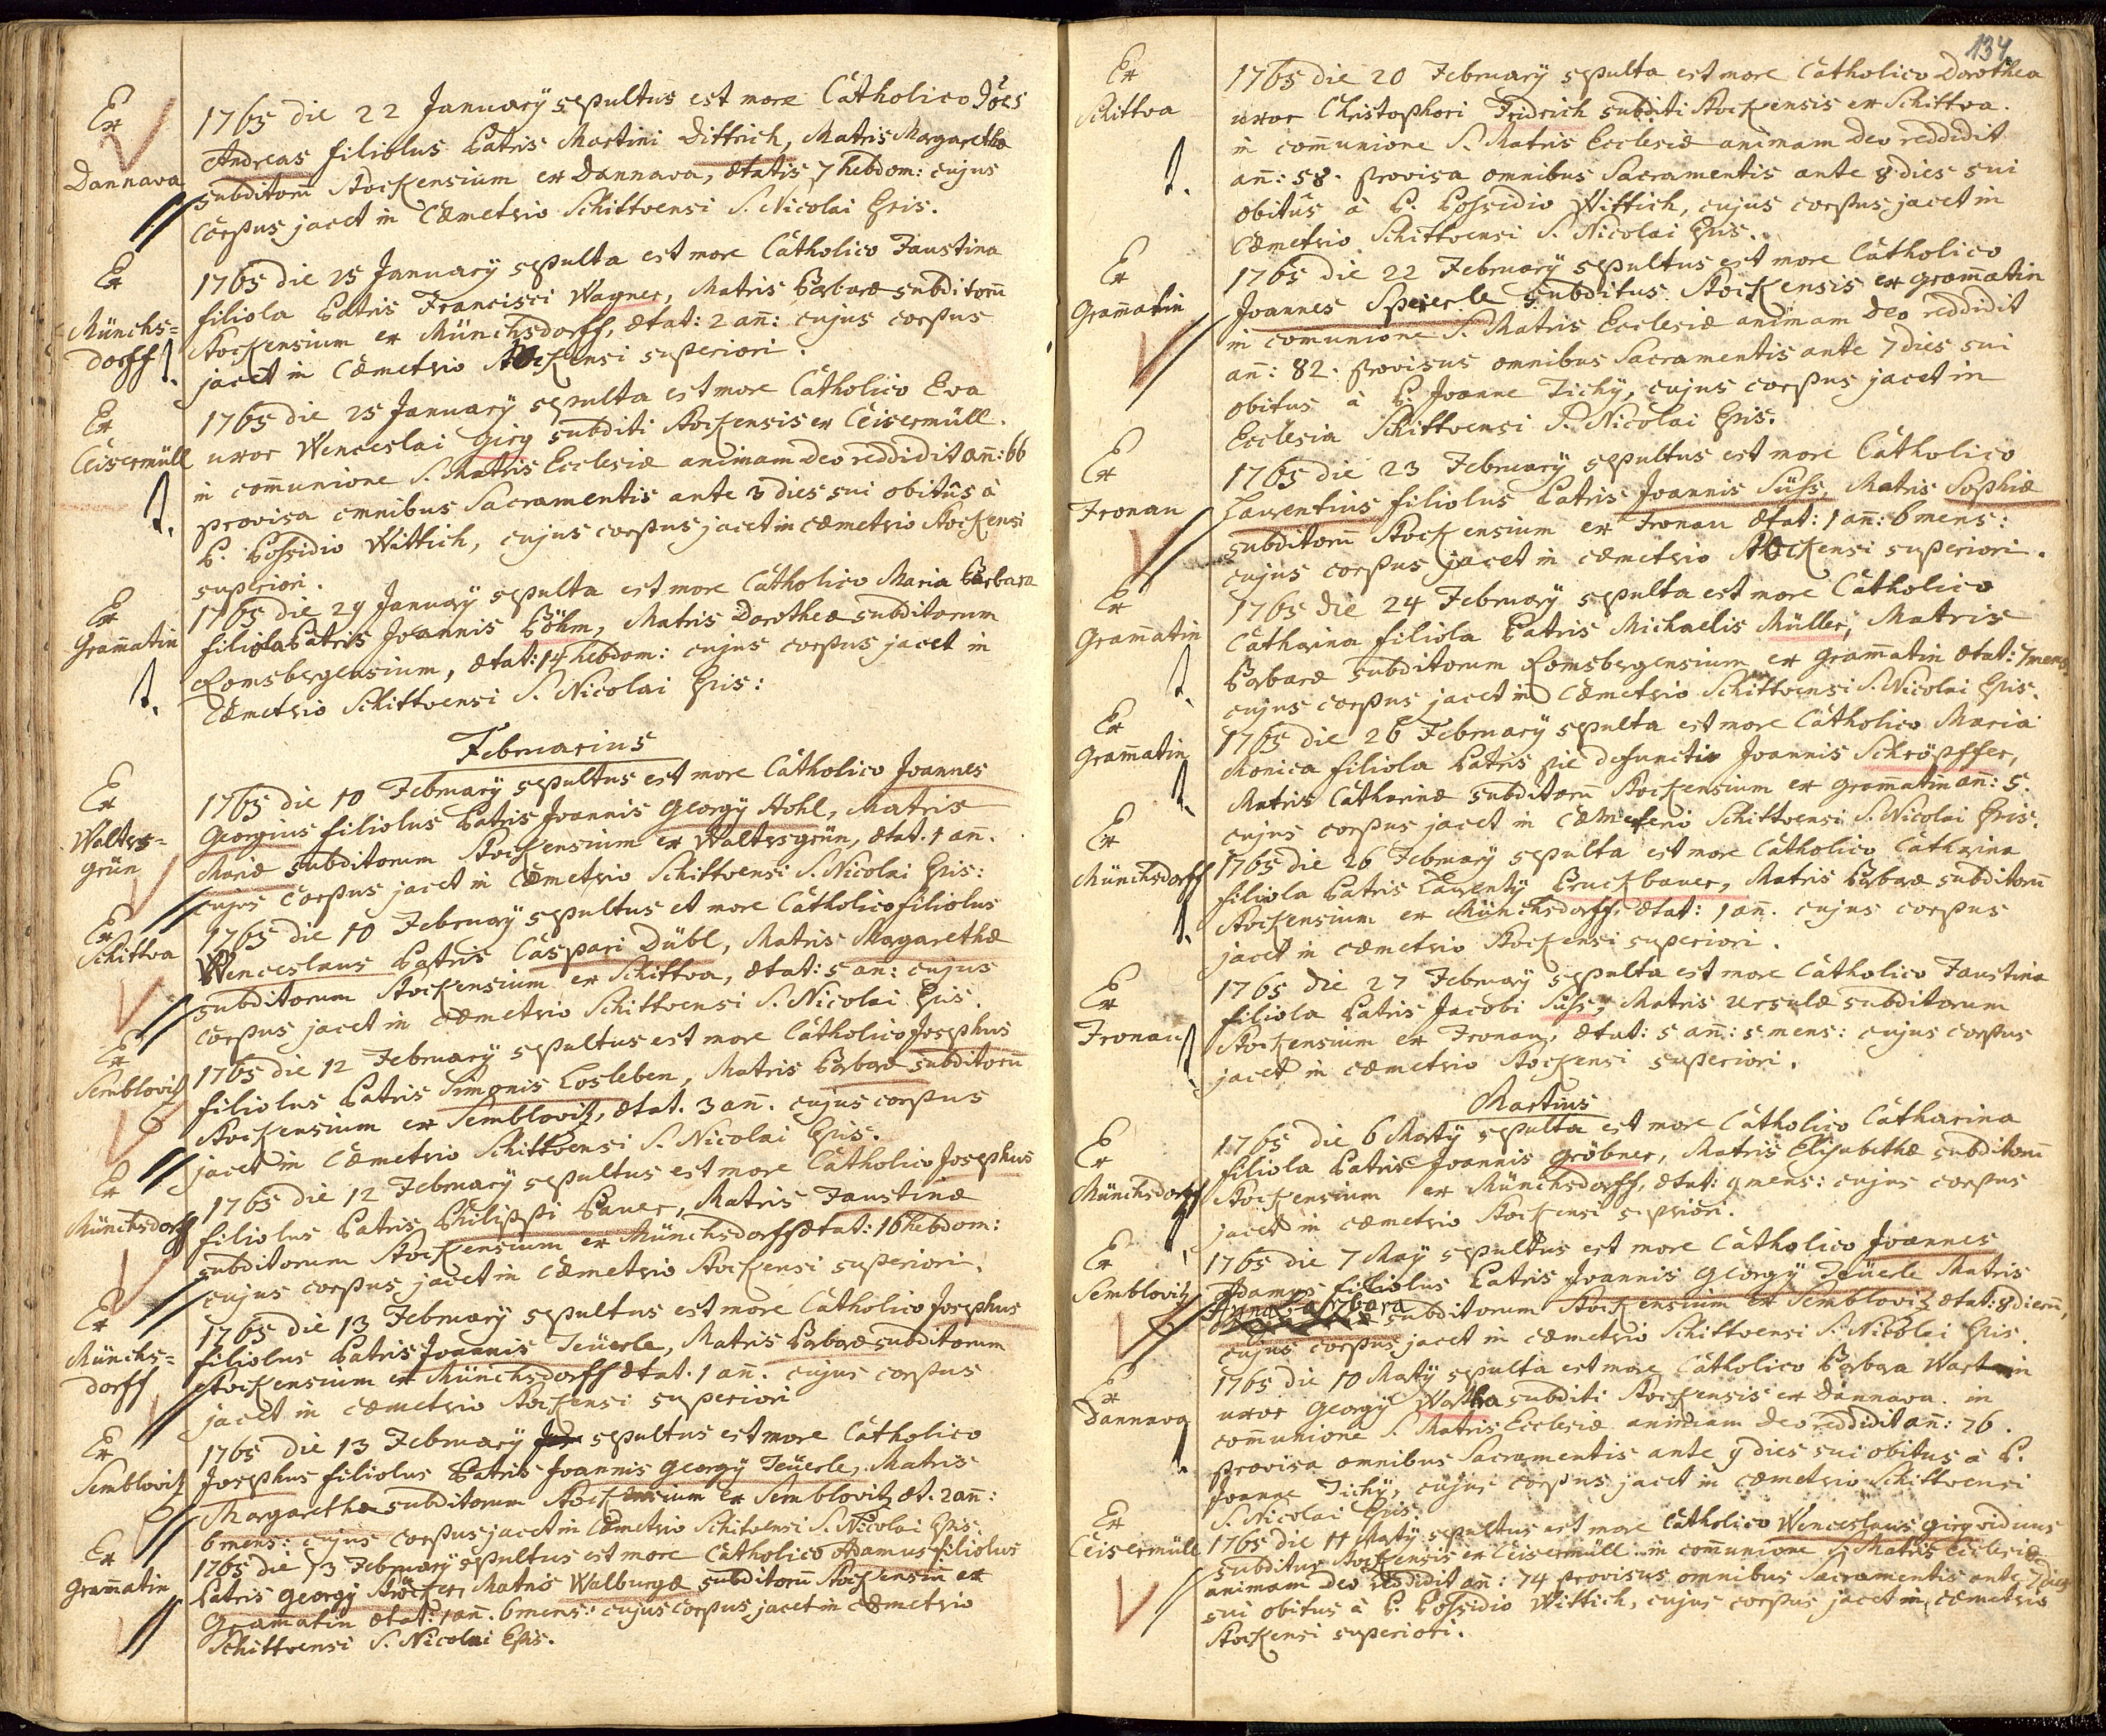 Ex
Dannava
1765 die 22 January sepultus est more Catholico Jões
Andreas filiolus Patris Martini Dittrich, Matris Margarethæ
subditorũ Stockensium ex Dannava, ætatis 7 hebdom: cujus
corpus jacet in Cæmeterio Schittvensi S. Nicolai Epis.
Ex
Münchs=
dorff
1765 die 25 January sepulta est more Catholico Faustina
filiola Patris Francisci Wagner, Matris Barbaræ subditorũ
Stockensium ex Münchsdorff, ætat: 2 añ: cujus corpus
jacet in Cæmeterio Stockensi superiori.
Ex
Ceisermüll
1765 die 25 January sepulta est more Catholico Eva
uxor Wenceslai Girg subditi Stockensis ex Ceisermüll.
in com̃unione S. Matris Ecclesiæ animam deo reddidit añ: 66
provisa omnibus Sacramentis ante 3 dies sui obitûs à
P. Possidio Wittich, cujus corpus jacet in cæmeterio Stockensi
superiori.
Ex
Gram̃atin
1765 die 29 January sepulta est more Catholico Maria Barbara
filiola Patris Joannis Böhm, Matris Dorotheæ subditorum
Romsbergensium, ætat: 14 hebdom: cujus corpus jacet in
Cæmeterio Schittvensi S. Nicolai Epis:
Februarius
Ex
Walters=
grün
1765 die 10 February sepultus est more Catholico Joannes
Georgius filiolus Patris Joannis Georgy Hohl, Matris
Mariæ subditorum Stockensium ex Waltersgrün, ætat. 1 an.
cujus corpus jacet in Cæmeterio Schittvensi S. Nicolai Epis:
Ex
Schittva
1765 die 10 February sepultus et more Catholico filiolus
Wenceslaus Patris Caspari Dübl, Matris Margarethæ
subditorum Stockensium ex Schittva, ætat: 5 an: cujus
corpus jacet in Cæmeterio Schittvensi S. Nicolai Epis.
Ex
Semblovitz
1765 die 12 February sepultus est more Catholico Josephus
filiolus Patris Simonis Losleben, Matris Barbaræ subditorũ
Stockensium ex Semblovitz, ætat. 3 añ. cujus corpus
jacet in Cæmeterio Schittvensi S. Nicolai Epis.
Ex
Münchsdorff
1765 die 12 February sepultus est more Catholico Josephus
filiolus Patris Philippi Bauer, Matris Faustinæ
subditorum Stockensium ex Münchsdorff ætat: 16 hebdom:
cujus corpus jacet in Cæmeterio Stockensi superiori.
Ex
Münchs=
dorff
1765 die 13 February sepultus est more Catholico Josephus
filiolus Patris Joannis Teüerle, Matris Barbaræ subditorum
Stockensium ex Münchsdorff ætat. 1 añ. cujus corpus
jacet in cæmeterio Stockensi superiori
Ex
Semblovitz
1765 die 13 February sepultus est more Catholico
Josephus filiolus Patris Joannis Georgy Teüerle, Matris
Margarethæ subditorum Stockensium ex Semblovitz æt. 2 añ:
6 mens: cujus corpus jacet in Cæmeterio Schitvensi S. Nicolai Epis.
Ex
Gram̃atin
1765 die 13 February sepultus est more Catholico Adamus filiolus
Patris Georgy Ströcker Matris Walburgæ subditorũ Stockensiũ ex
Gram̃atin ætat: 1 añ. 6 mens: cujus corpus jacet in cæmeterio
Schittvensi S. Nicolai Epis.
134
Ex
Schittva
1765 die 20 February sepulta est more Catholico Dorothea
uxor Christophori Fridrich subditi Stockensis ex Schittva.
in com̃unione S. Matris Ecclesiæ animam deo reddidit
añ: 58. provisa omnibus Sacramentis ante 8 dies sui
obitûs à P. Possidio Wittich, cujus corpus jacet in
Cæmeterio Schittvensi S. Nicolai Epis.
Ex
Gram̃atin
1765 die 22 February sepultus est more Catholico
Joannes Speierle subditus Stockensis ex Gram̃atin
in comunione S. Matris Ecclesiæ animam deo reddidit
añ: 82. provisus omnibus Sacramentis ante 7 dies sui
obitus à P. Joanne Tichÿ, cujus corpus jacet in
Ecclesia Schittvensi S. Nicolai Epis.
Ex
Fronau
1765 die 23 February sepultus est more Catholico
Laurentius filiolus Patris Joannis Süss, Matris Sophiæ
subditorũ Stockensium ex Fronau ætat: 1 añ: 6 mens:
cujus corpus jacet in cæmeterio Stockensi superiori.
Ex
Gram̃atin
1765 die 24 February sepulta est more Catholico
Catharina filiola Patris Michaelis Müller, Matris
Barbaræ subditorum Romsbergensium ex Gram̃atin ætat: 7 mens.
cujus corpus jacet in Cæmeterio Schittvensi S. Nicolai Epis.
Ex
Gram̃atin
1765 die 26 February sepulta est more Catholico Maria
Monica filiola Patris pie defuncti Joannis Schröpffer,
Matris Catharinæ subditorũ Stockensium ex Gram̃atin añ: 5.
cujus corpus jacet in Cæmeterio Schittvensi S. Nicolai Epis.
Ex
Münchsdorff
1765 die 26 February sepulta est more Catholico Catharina
filiola Patris Laurenty Bruckbauer, Matris Barbaræ subditorũ
Stockensium ex Münchsdorff, ætat: 1 añ. cujus corpus
jacet in cæmeterio Stockensi superiori.
Ex
Fronau
1765 die 27 February sepulta est more Catholico Faustina
filiola Patris Jacobi Süss, Matris Ursulæ subditorum
Stockensium ex Fronau, ætat: 5 añ: 5 mens: cujus corpus
jacet in cæmeterio Stockensi superiori.
Martius
Ex
Münchsdorff
1765 die 6 Marty sepulta est more Catholico Catharina
filiola Patris Joannis Gröbner, Matris Elisabethæ subditorũ
Stockensium ex Münchsdorff, ætat: 9 mens: cujus corpus
jacet in cæmeterio Stockensi superiori.
Ex
Semblovitz
1765 die 7 May sepultus est more Catholico Joannes
Adamus filiolus Patris Joannis Georgy Teüerle Matris
Anna Barbara subditorum Stockensium ex Semblovitz ætat: 8 dierũ,
cujus corpus jacet in cæmeterio Schittvensi S. Nicolai Epis.
Ex
Dannava
1765 die 10 Marty sepulta est more Catholico Barbara Wartin
uxor Georgy Wartha subditi Stockensis ex Dannava. in
com̃unione S. Matris Ecclesiæ animam deo reddidit añ: 76.
provisa omnibus Sacramentis ante 9 dies sui obitus à P.
Joanne Tichÿ, cujus corpus jacet in cæmeterio Schittvensi
S. Nicolai Epis.
Ex
Ceisermüll
1765 die 11 Marty sepultus est more Catholico Wenceslaus Girg viduus
subditus Stockensis ex Ceisermüll. in com̃unione S. Matris Ecclesiæ
animam deo reddidit añ: 74 provisus omnibus Sacramentis ante 7 dies
sui obitus à P. Possidio Wittich, cujus corpus jacet in cæmeterio
Stockensi superiori.